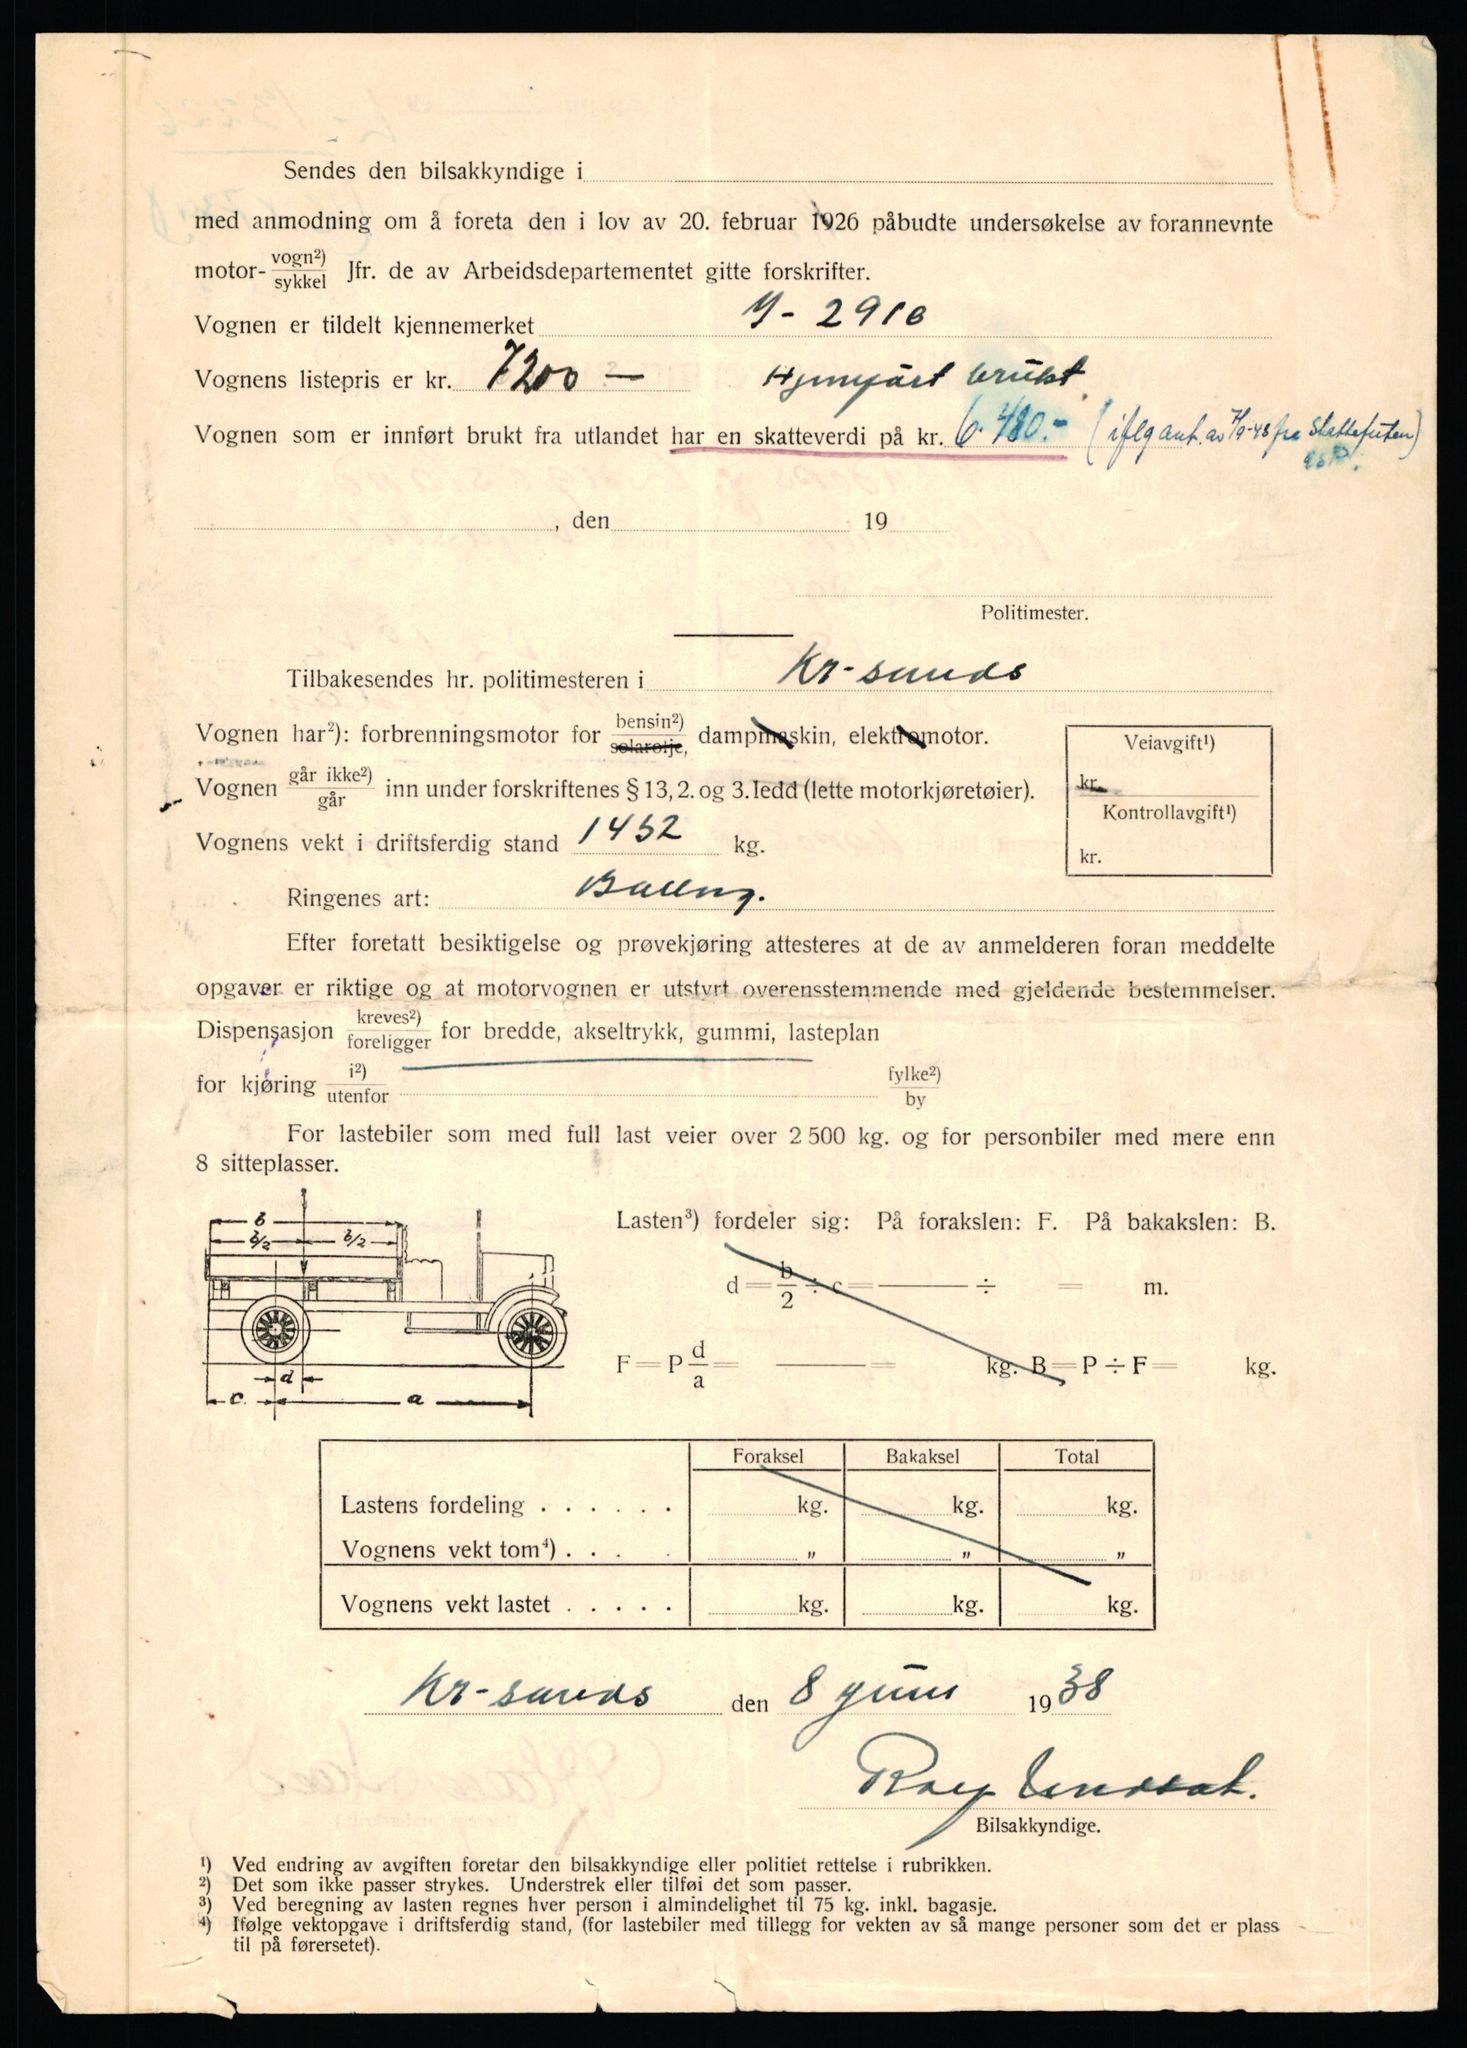 Sendes den bilsakkyndige i
med anmodning om å foreta den i lov av 20. februar 1926 påbudte undersøkelse av forannevnte
motor- vogn²) / sykkel Jfr. de av Arbeidsdepartementet gitte forskrifter.
Vognen er tildelt kjennemerket 2910
Vognens listepris er kr. 7200 — brukt
Vognen som er innført brukt fra utlandet har en skatteverdi på kr. 6.480.- (iflg ant. av 7/9-48 fra Skattefuten)
, den 19
Politimester.
Tilbakesendes hr. politimesteren i Kr-sunds
Vognen har²): forbrenningsmotor for bensin²) / solarolje, dampmaskin, elektromotor.
Veiavgift¹)
Vognen går ikke²) / går inn under forskriftenes § 13, 2. og 3. ledd (lette motorkjøretøier).
kr.
Kontrollavgift¹)
Vognens vekt i driftsferdig stand 1452 kg.
kr.
Ringenes art: Ballng.
Efter foretatt besiktigelse og prøvekjøring attesteres at de av anmelderen foran meddelte
opgaver er riktige og at motorvognen er utstyrt overensstemmende med gjeldende bestemmelser.
Dispensasjon kreves²) / foreligger for bredde, akseltrykk, gummi, lasteplan
for kjøring i²) / utenfor fylke²) / by
For lastebiler som med full last veier over 2 500 kg. og for personbiler med mere enn
8 sitteplasser.
b
b/2 b/2
d
c a
Lasten³) fordeler sig: På forakslen: F. På bakakslen: B.
d = b/2 ÷ c = ÷ = m.
F = P d/a = = kg. B = P ÷ F = kg.
Foraksel Bakaksel Total
Lastens fordeling . . . . . . kg. kg. kg.
Vognens vekt tom⁴) . . . „ „ „
Vognens vekt lastet . . . . . kg. kg. kg.
Kr-sunds den 8 juni 1938
Bilsakkyndige.
¹) Ved endring av avgiften foretar den bilsakkyndige eller politiet rettelse i rubrikken.
²) Det som ikke passer strykes. Understrek eller tilføi det som passer.
³) Ved beregning av lasten regnes hver person i almindelighet til 75 kg. inkl. bagasje.
⁴) Ifølge vektopgave i driftsferdig stand, (for lastebiler med tillegg for vekten av så mange personer som det er plass
til på førersetet).